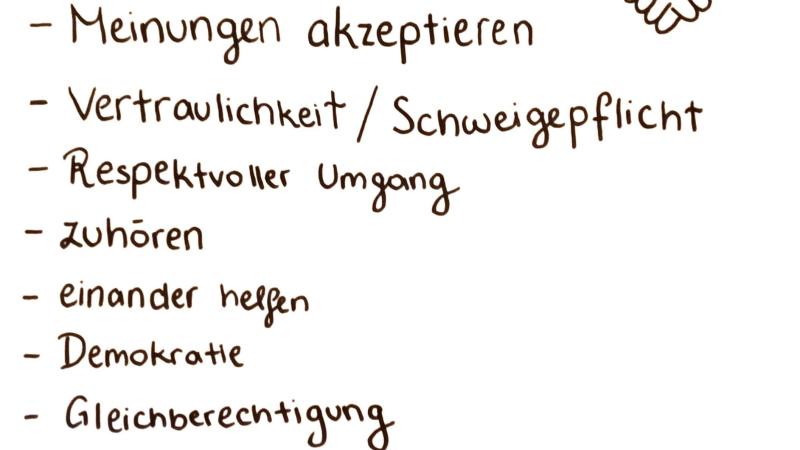 - Meinungen akzeptieren
- Vertraulichkeit / Schweigepflicht
- Respektvoller Umgang
- zuhören
- einander helfen
- Demokratie
- Gleichberechtigung